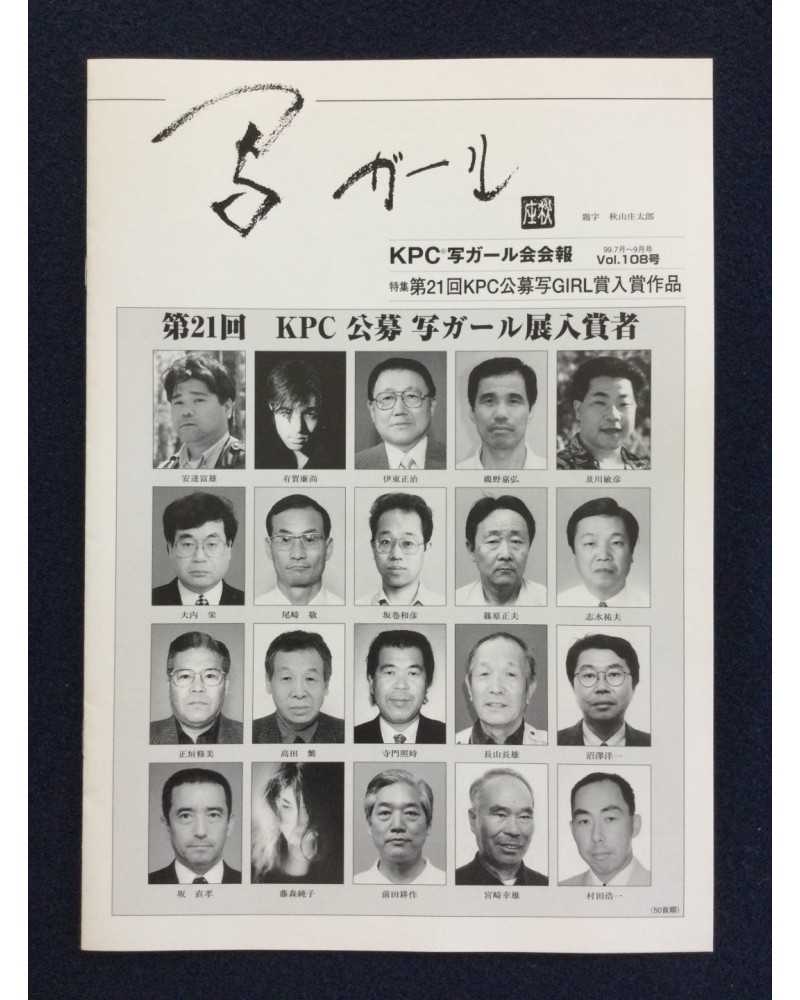 写ガール
秋庄
題字 秋山庄太郎
KPC®写ガール会会報
99.7月〜9月号
Vol.108号
特集 第21回KPC公募写GIRL賞入賞作品
第21回 KPC 公募 写ガール展入賞者
安達富雄 有賀廉尚 伊東正治 磯野嘉弘 及川敏彦
大内 栄 尾崎 敬 坂巻和彦 篠原正夫 志水祐夫
正垣修美 高田 繁 寺門照時 長山長雄 沼澤洋一
坂 直孝 藤森純子 前田耕作 宮崎幸雄 村田浩一
(50音順)